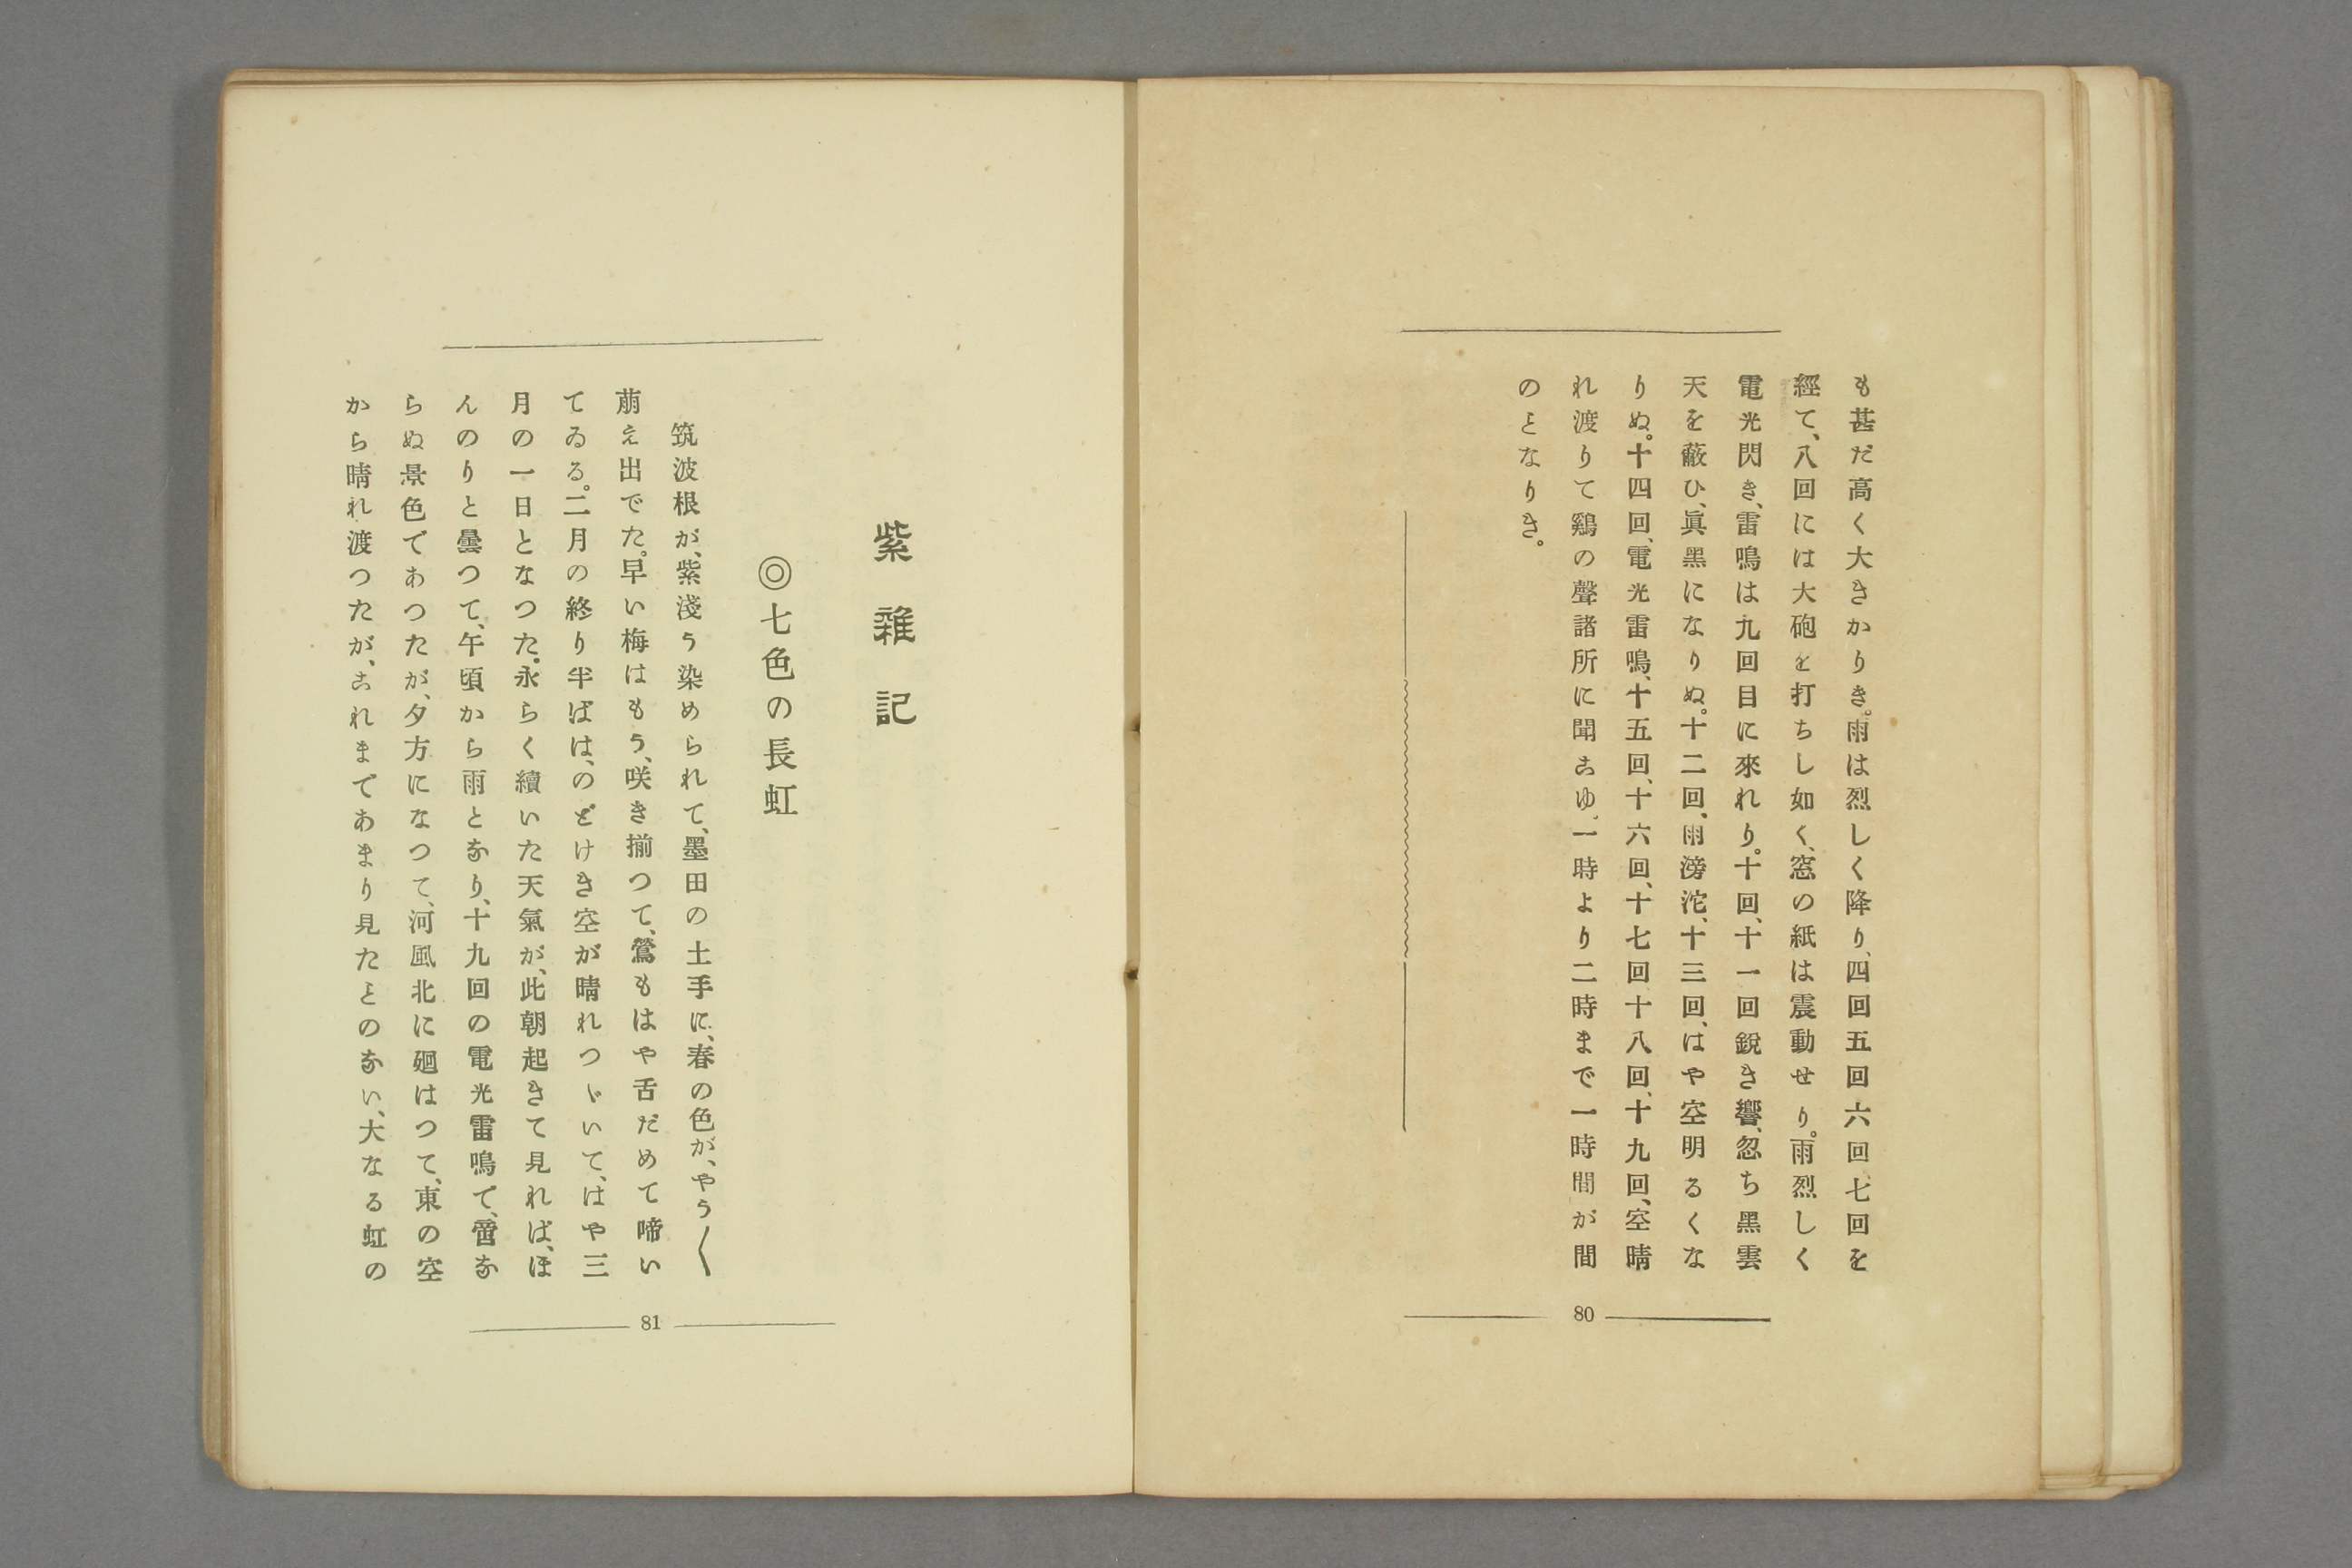 も甚だ高く大きかりき。雨は烈しく降り、四回五回六回、七回を
經て、八回には大砲を打ちし如く、窓の紙は震動せり。雨烈しく
電光閃き、雷鳴は九回目に來れり。十回、十一回鋭き響、忽ち黑雲
天を蔽ひ、眞黑になりぬ。十二回、雨滂沱、十三回、はや空明るくな
りぬ。十四回、電光雷鳴、十五回、十六回、十七回十八回、十九回、空晴
れ渡りて鷄の聲諸所に聞こゆ。一時より二時まで一時間が間
のとなりき。
80
紫雜記
◎七色の長虹
筑波根が、紫淺う染められて、墨田の土手に、春の色が、やう〱
萠え出でた。早い梅はもう、咲き揃つて、鶯もはや舌だめて啼い
てゐる。二月の終り半ばは、のどけき空が晴れつゞいて、はや三
月の一日となつた。永らく續いた天氣が、此朝起きて見れば、ほ
んのりと曇つて、午頃から雨となり、十九回の電光雷鳴で、啻な
らぬ景色であつたが、夕方になつて、河風北に廻はつて、東の空
から晴れ渡つたが、これまであまり見たとのない、大なる虹の
81